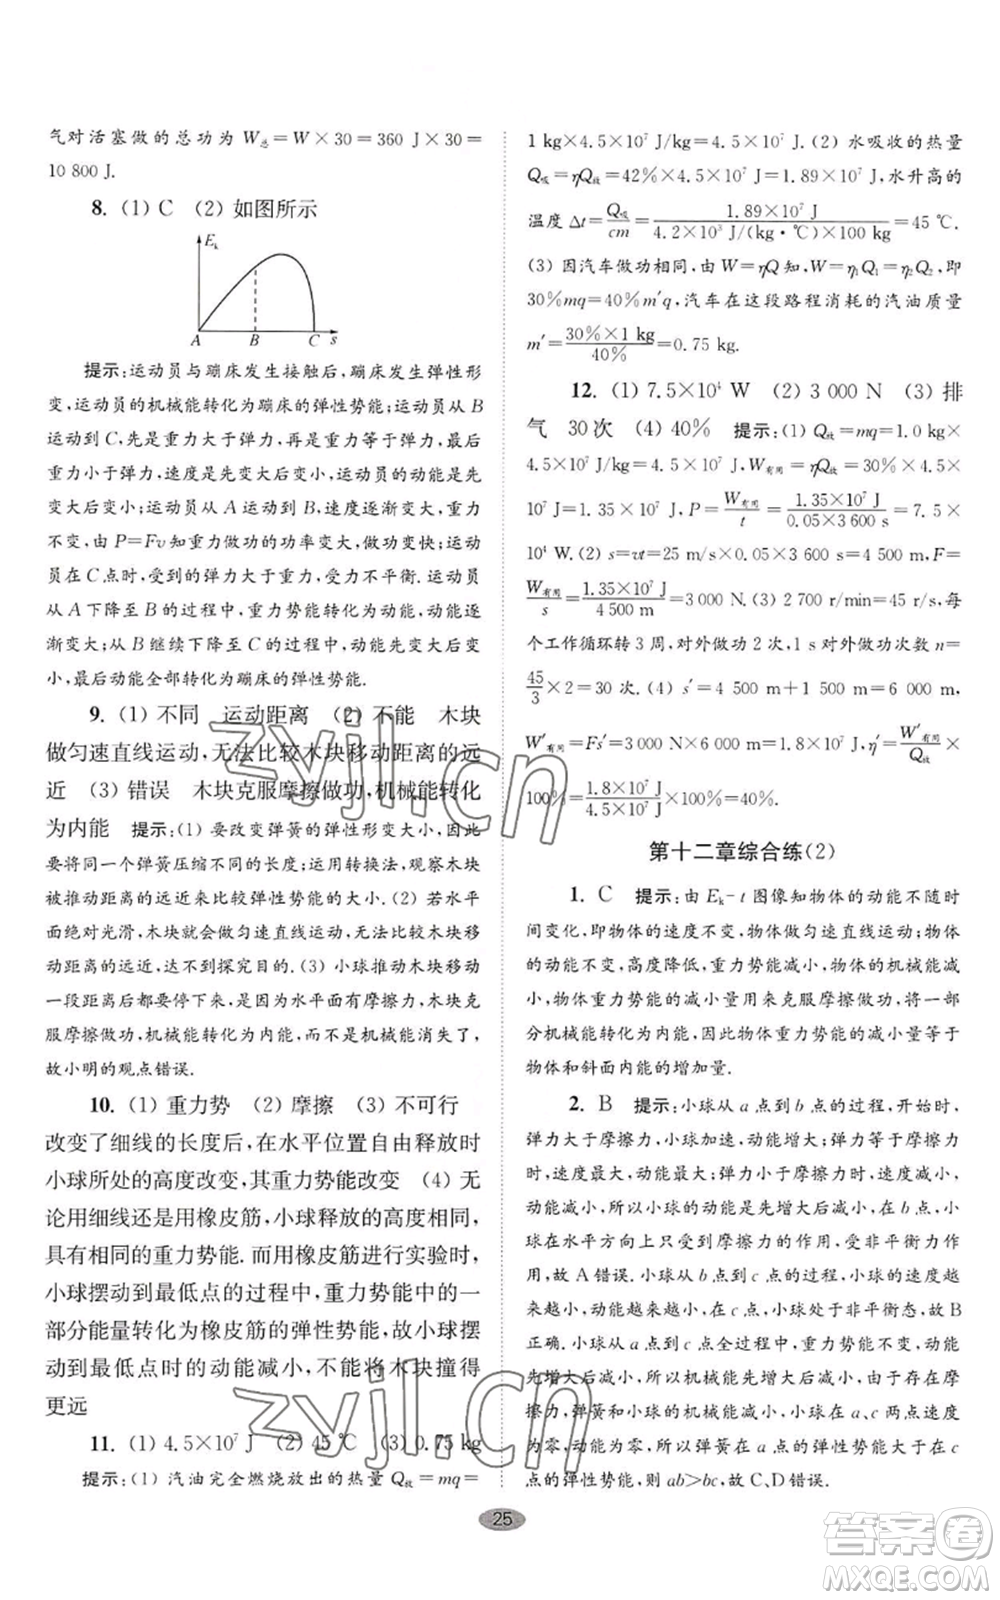 气对活塞做的总功为 W总＝W×30＝360 J×30＝
10 800 J.
8. (1) C (2) 如图所示
Ek
A B C s
提示:运动员与蹦床发生接触后,蹦床发生弹性形
变,运动员的机械能转化为蹦床的弹性势能;运动员从 B
运动到 C,先是重力大于弹力,再是重力等于弹力,最后
重力小于弹力,速度是先变大后变小,运动员的动能是先
变大后变小.运动员从 A 运动到 B,速度逐渐变大,重力
不变,由 P＝Fv 知重力做功的功率变大,做功变快;运动
员在 C 点时,受到的弹力大于重力,受力不平衡.运动员
从 A 下降至 B 的过程中,重力势能转化为动能,动能逐
渐变大;从 B 继续下降至 C 的过程中,动能先变大后变
小,最后动能全部转化为蹦床的弹性势能.
9. (1) 不同 运动距离 (2) 不能 木块
做匀速直线运动,无法比较木块移动距离的远
近 (3) 错误 木块克服摩擦做功,机械能转化
为内能 提示:(1) 要改变弹簧的弹性形变大小,因此
将同一个弹簧压缩不同的长度;运用转换法,观察木块被
推动距离的远近来反映弹性势能的大小.(2) 若水平
面绝对光滑,木块就会做匀速直线运动,无法比较木块移
动距离的远近,达不到探究目的.(3) 小球推动木块移动
一段距离后木块要停下来,是因为水平面有摩擦力,木块克
服摩擦做功,机械能转化为内能,而不是机械能消失了.
故小明的观点错误.
10. (1) 重力势 (2) 摩擦 (3) 不可行
改变了细线的长度后,在水平位置自由释放时
小球所处的高度改变,其重力势能改变 (4) 无
论用细线还是用橡皮筋,小球释放的高度相同,
具有相同的重力势能.而用橡皮筋进行实验时,
小球摆动到最低点的过程中,重力势能中的一
部分能量转化为橡皮筋的弹性势能,故小球摆
动到最低点时的动能减小,不能将木块撞得
更远
11. (1) 4.5×10⁷ J (2) 45 ℃ (3) 0.75 kg
提示:(1) 汽油完全燃烧放出的热量 Q放＝mq＝
1 kg×4.5×10⁷ J/kg＝4.5×10⁷ J.(2) 水吸收的热量
Q吸＝ηQ放＝42%×4.5×10⁷ J＝1.89×10⁷ J,水升高的
温度 Δt＝Q吸/cm＝1.89×10⁷ J/4.2×10³ J/(kg·℃)×100 kg＝45 ℃.
(3) 因汽车做功相同,由 W＝ηQ 知,W＝η₁Q₁＝η₂Q₂,即
30%mq＝40%m′q,汽车在这段路程消耗的汽油质量
m′＝30%×1 kg/40%＝0.75 kg.
12. (1) 7.5×10⁴ W (2) 3 000 N (3) 排
气 30次 (4) 40% 提示:(1) Q放＝mq＝1.0 kg×
4.5×10⁷ J/kg＝4.5×10⁷ J,W有用＝ηQ放＝30%×4.5×
10⁷ J＝1.35×10⁷ J,P＝W有用/t＝1.35×10⁷ J/0.05×3 600 s＝7.5×
10⁴ W.(2) s＝vt＝25 m/s×0.05×3 600 s＝4 500 m,F＝
W有用/s＝1.35×10⁷ J/4 500 m＝3 000 N.(3) 2 700 r/min＝45 r/s,每
个工作循环转 3 周,对外做功 2 次,1 s 对外做功次数 n＝
45/3×2＝30 次.(4) s′＝4 500 m＋1 500 m＝6 000 m,
W′有用＝Fs′＝3 000 N×6 000 m＝1.8×10⁷ J,η′＝W′有用/Q放×
100%＝1.8×10⁷ J/4.5×10⁷ J×100%＝40%.
第十二章综合练(2)
1. C 提示:由 Ek-t 图像知物体的动能不随时
间变化,即物体的速度不变,物体做匀速直线运动;物体的
动能不变,高度降低,重力势能减小,物体的机械能减
小,物体重力势能的减小量用来克服摩擦做功,将一部
分机械能转化为内能,因此物体重力势能的减小量等于
物体和斜面内能的增加量.
2. B 提示:小球从 a 点到 b 点的过程,开始时,
弹力大于摩擦力,小球加速,动能增大;弹力等于摩擦力
时,速度最大,动能最大;弹力小于摩擦力时,小球减速,
动能减小,所以小球的动能是先增大后减小.在 b 点,小
球在水平方向上只受到摩擦力的作用,受非平衡力的作
用,故 A 错误.小球从 b 点到 c 点的过程,小球的速度越
来越小,动能越来越小,在 c 点,小球处于非平衡态,故 B
正确.小球从 a 点到 c 点全过程中,重力势能不变,动能
先增大后减小,弹性势能一直减小,由于存在摩擦
力,弹簧和小球的机械能减小,故在 a、c 两点动能
为零,动能不变;弹性势能减小,在 b 点小球还具有一定
的弹性势能,则 ab>bc,故 C、D 错误.
25
zyjl.cn
zyjl.cn
答案圈
MXQE.COM